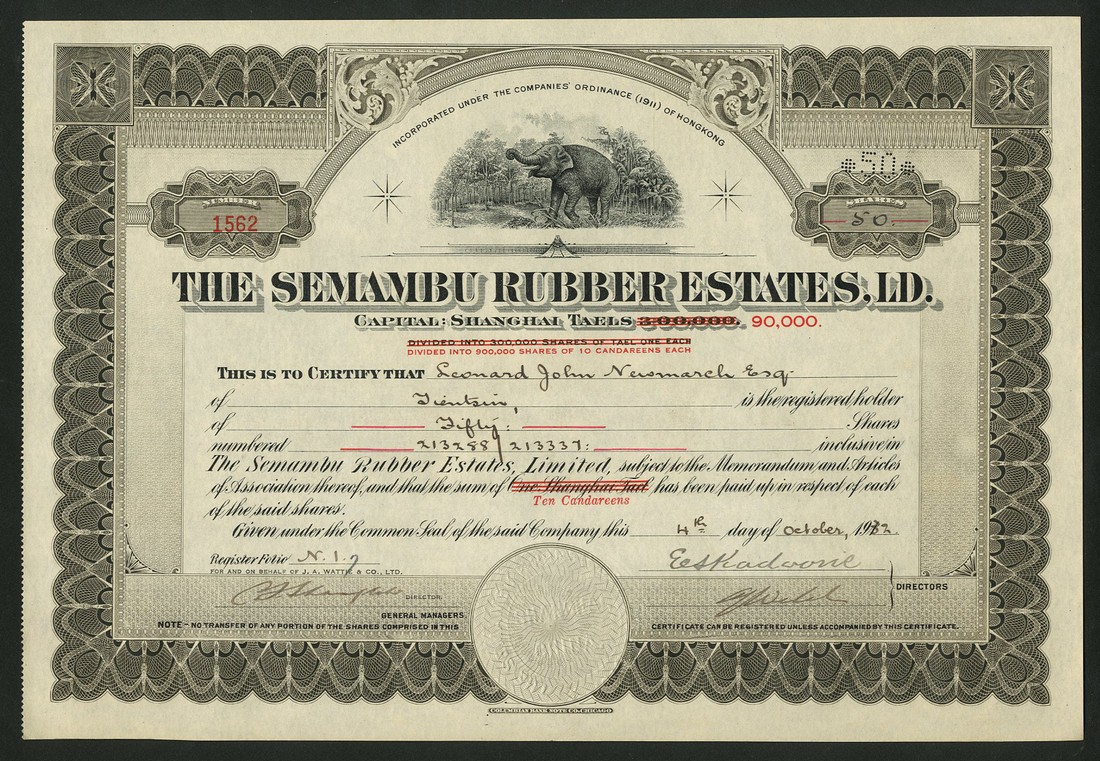 INCORPORATED UNDER THE COMPANIES' ORDINANCE (1911) OF HONGKONG
*50*
1562
SHARES
50.
THE SEMAMBU RUBBER ESTATES, LD.
CAPITAL: SHANGHAI TAELS 300,000. 90,000.
DIVIDED INTO 300,000 SHARES OF TAEL ONE EACH
DIVIDED INTO 900,000 SHARES OF 10 CANDAREENS EACH
THIS IS TO CERTIFY THAT Leonard John Newmarch Esq.
of Tientsin, is the registered holder
of Fifty: Shares
numbered 213288/213337: inclusive in
The Semambu Rubber Estates, Limited, subject to the Memorandum and Articles
of Association thereof, and that the sum of One Shanghai Tael has been paid up in respect of each
Ten Candareens
of the said shares.
Given under the Common Seal of the said Company this 4th day of October, 1932.
Register Folio N. 1.
FOR AND ON BEHALF OF J. A. WATTIE & CO., LTD.
DIRECTOR.
DIRECTORS
GENERAL MANAGERS
NOTE - NO TRANSFER OF ANY PORTION OF THE SHARES COMPRISED IN THIS CERTIFICATE CAN BE REGISTERED UNLESS ACCOMPANIED BY THIS CERTIFICATE.
COLUMBIAN BANK NOTE CO. CHICAGO